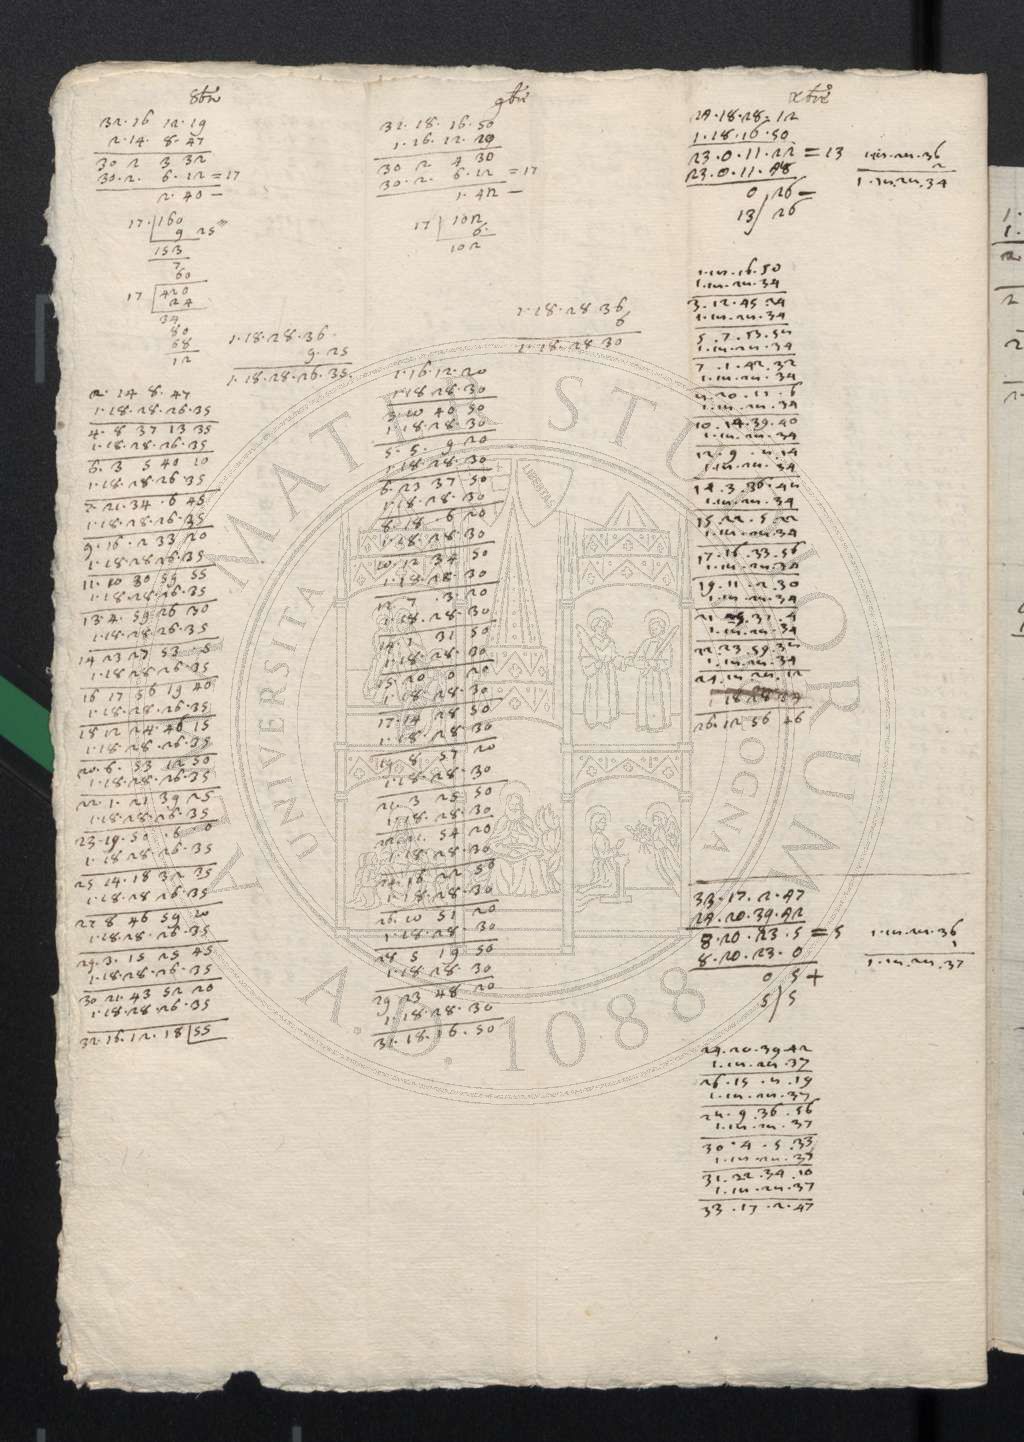 8bre
32. 16 12. 19
2. 14. 8. 47
30 2 3 32
30. 2. 6. 12 = 17
2. 40 —
17. 160
9 25'''
153
7
60
17 420
24
34
80
68
12
1. 18. 28. 36
9. 25
1. 18. 28. 26. 35.
2. 14 8. 47
1. 18. 28. 26. 35
4. 8 37 13 35
1. 18. 28. 26. 35
6. 3 5 40 10
1. 18. 28 26 35
7. 21. 34. 6 45
1. 18. 28. 26. 35
9. 16. 2 33 20
1. 18 28 26. 35
11. 10 30 59 55
1. 18 28. 26. 35
13 4. 59 26 30
1. 18. 28 26. 35
14 23 27 53 5
1. 18 28 26. 35
16 17 56 19 40
1. 18. 28. 26. 35
18 12 24. 46 15
1. 18. 28. 26. 35
20. 6. 53 12 50
1. 18. 28. 26. 35
22. 1. 21 39 25
1. 18. 28. 26. 35
23. 19. 50. 6 0
1. 18 28. 26. 35
25 14. 18 32 35
1. 18. 28 26. 35
27 8 46 59 10
1. 18. 28. 26. 35
29 3. 15 25 45
1. 18. 28. 26. 35
30 21. 43 52 20
1. 18. 28 26. 35
32. 16. 12. 18 55
9bre
31. 18. 16. 50
1. 16. 12. 20
30 2 4 30
30. 2. 6. 12 = 17
1. 42 —
17 102
6.
102
1. 18. 28 36
6
1. 18. 28 30
1. 16. 12. 20
1. 18 28. 30
3. 10 40 50
1. 18. 28. 30
5. 5. 9 20
1. 18. 28. 30
6 23 37 50
1. 18. 28. 30
8. 18. 6 20
1. 18. 28 30
10. 12 34 50
1. 18. 28. 30
12 7 3. 20
1. 18. 28. 30
14. 1 31 50
1. 18. 28. 30
15. 20 0 20
1. 18. 28. 30
17. 14 28 50
1. 18. 28. 30
19 8 57 20
1. 18. 28. 30
21. 3 25 50
1. 18. 28. 30
22 21. 54 20
1. 18. 28. 30
24. 16 22 50
1. 18. 28. 30
26. 10 51 20
1. 18. 28. 30
28 5 19 50
1. 18. 28. 30
29 23 48 20
1. 18. 28. 30
31. 18. 16. 50
xbre
24. 18. 28. 12
1. 18. 16. 50
23. 0. 11. 22 = 13
23. 0. 11. 48
0, 26 —
13 / 26
1. 18. 28. 36
2
1. 18. 28. 34
1. 18. 16. 50
1. 18. 28. 34
3. 12. 45. 24
1. 18. 28. 34
5. 7. 13. 58
1. 18. 28. 34
7. 1. 42. 32
1. 18. 28. 34
8. 20. 11. 6
1. 18. 28. 34
10. 14. 39. 40
1. 18. 28. 34
12. 9. 8. 14
1. 18. 28. 34
14. 3. 36. 48
1. 18. 28. 34
15. 22. 5. 22
1. 18. 28. 34
17. 16. 33. 56
1. 18. 28. 34
19. 11. 2. 30
1. 18. 28. 34
21. 5. 31. 4
1. 18. 28. 34
22 23. 59. 38
1. 18. 28. 34
24. 18. 28. 12
1 18 28 34
26. 12 56 46
33. 17. 2. 47
24. 20. 39. 42
8. 20. 23. 5 = 5
8. 20. 23. 0
0 5 +
5 / 5
1. 18. 28. 36
1
1. 18. 28. 37
24. 20. 39 42
1. 18. 28. 37
26. 15. 8. 19
1. 18. 28. 37
28. 9. 36. 56
1. 18. 28. 37
30. 4. 5. 33
1. 18. 28. 37
31. 22. 34. 10
1. 18. 28. 37
33. 17. 2. 47
ALMA MATER STUDIORUM
A.D. 1088
UNIVERSITA
BOLOGNA